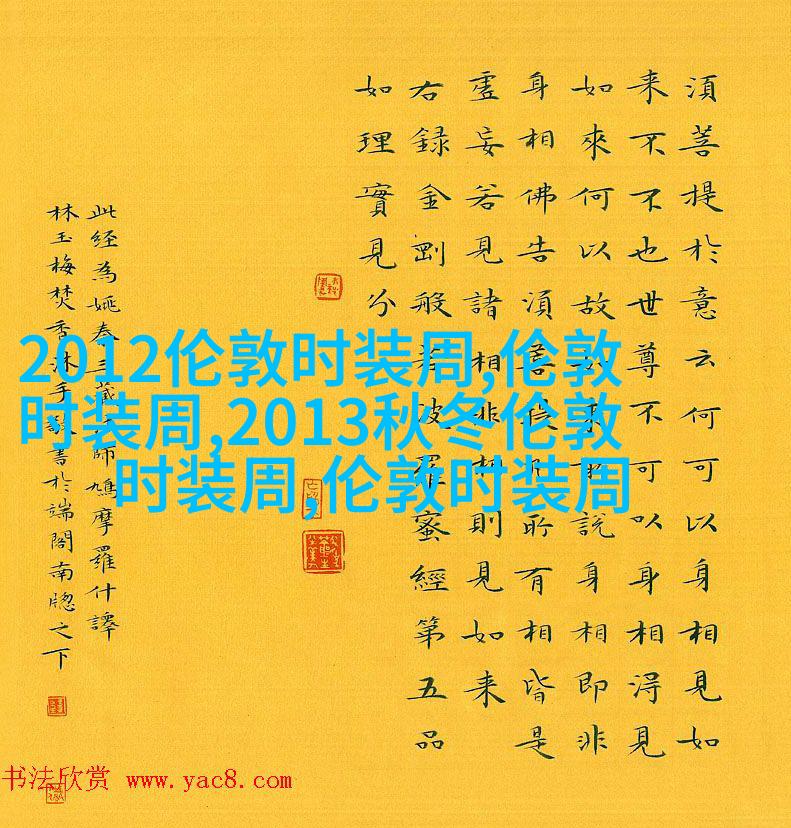 湏菩提於意云何可以身相見如
来不不也世尊不可以身相淂見
如來何以故如来所說身相即非
身相佛告湏菩提凡所有相皆是
虛妄若見諸相非相則見如来
右録金剛般若波羅蜜經第五品
如理實見分
此经為姚秦三藏法師鳩摩羅什譯
林玉梅焚香沐手敬書於端閣南牕之下
2012伦敦时装周,伦敦
时装周,2013秋冬伦敦
时装周,伦敦时装周
书法欣赏 www.yac8.com